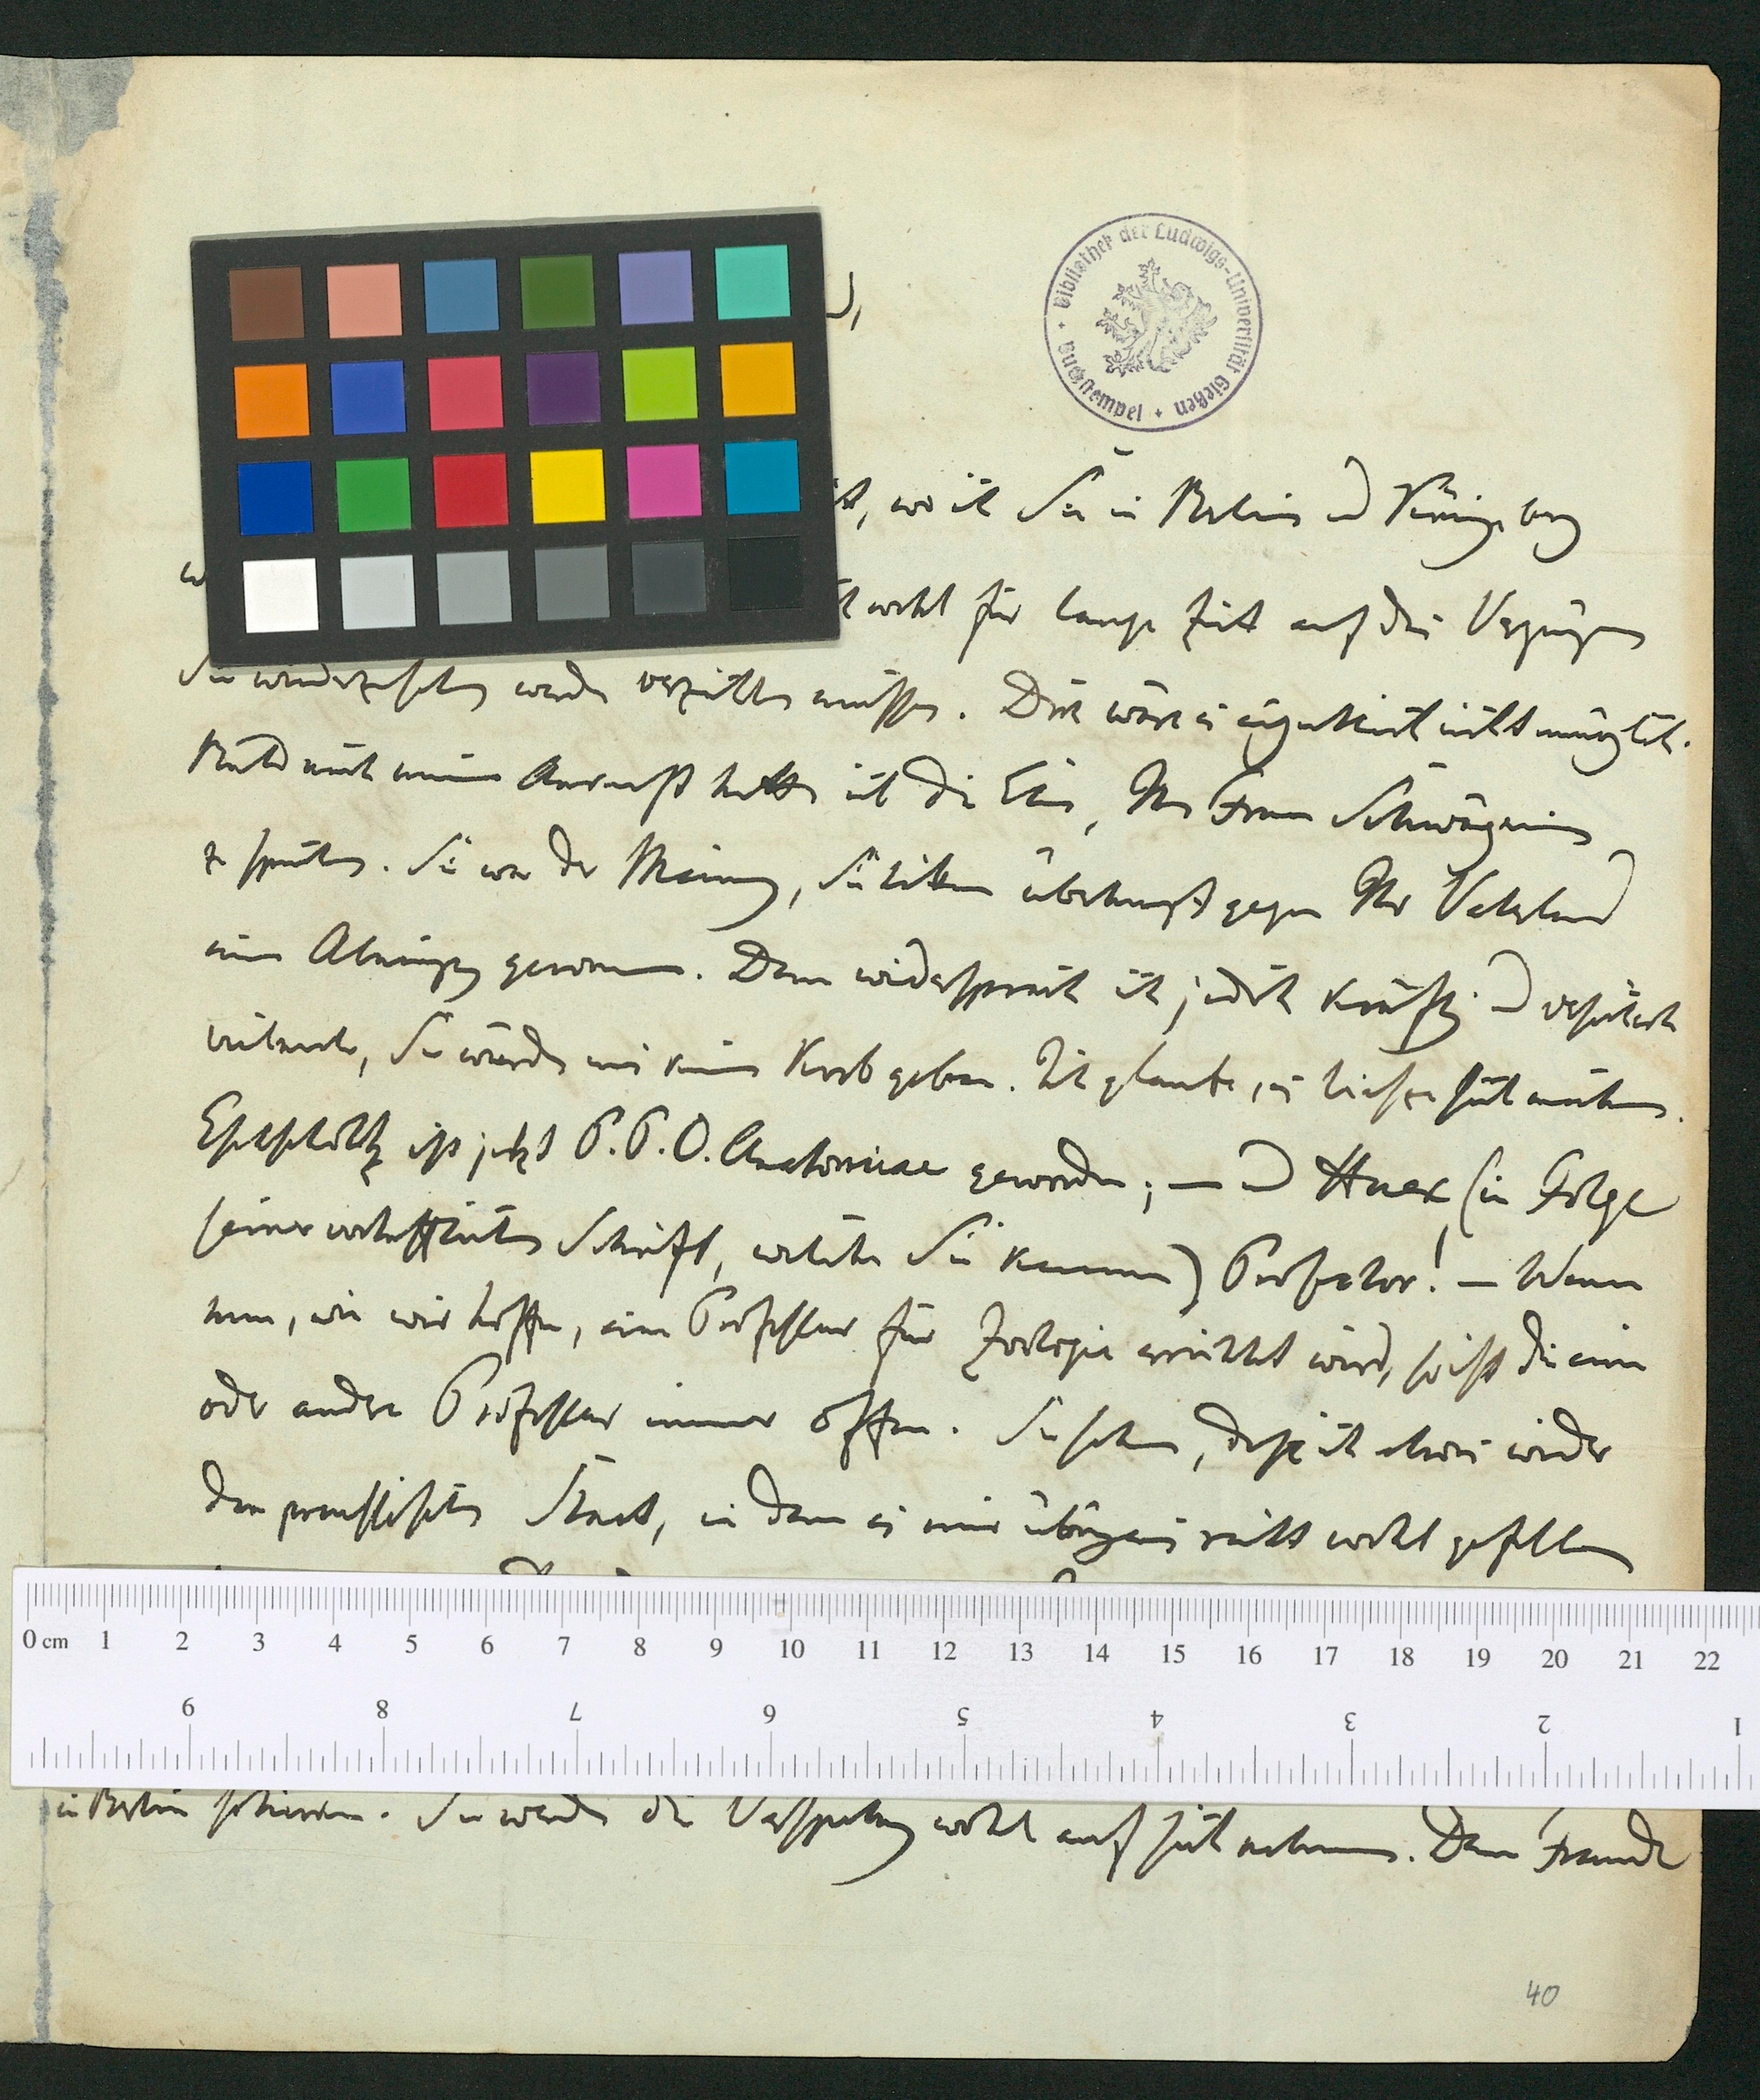 Bibliothek der Ludwigs-Universität Gießen
Buchstempel
wo ich Sie in Berlin und Königsberg
wohl für lange Zeit auf das Vergnügen
Sie wiederzusehen werde verzichten müssen. Doch wäre es eigentlich nicht unmöglich.
Bald nach meiner Ankunft hatte ich die Ehre, Ihre Frau Schwägerin
zu sprechen. Sie war der Meinung, Sie hätten überhaupt gegen Ihr Vaterland
eine Abneigung gewonnen. Dem widersprach ich jedoch kräftig und versicherte
vielmehr, Sie würden uns keinen Korb geben. Ich glaube, es ließe sich machen.
Eschscholtz ist jetzt P. P. O. Anatomiae geworden; — und Hueck (in Folge
seiner Schrift, welche Sie kennen) Prosector! — Wenn
nun, wie wir hoffen, eine Professur für Zoologie errichtet wird, so ist die eine
oder andere Professur immer offen. Sie sehen, dass ich etwas wider
den preussischen Staat, in dem es mir übrigens recht wohl gefallen
0 cm 1 2 3 4 5 6 7 8 9 10 11 12 13 14 15 16 17 18 19 20 21 22
9 8 7 6 5 4 3 2 1
in Berlin Sie werden die Verspätung wohl auf sich nehmen. Dem Freunde
40